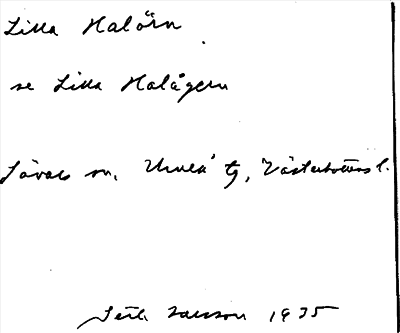 Lilla Halörn
se Lilla Halågern
Lövars sn, Umeå tg, Västerbottens l.
Larsson 1935